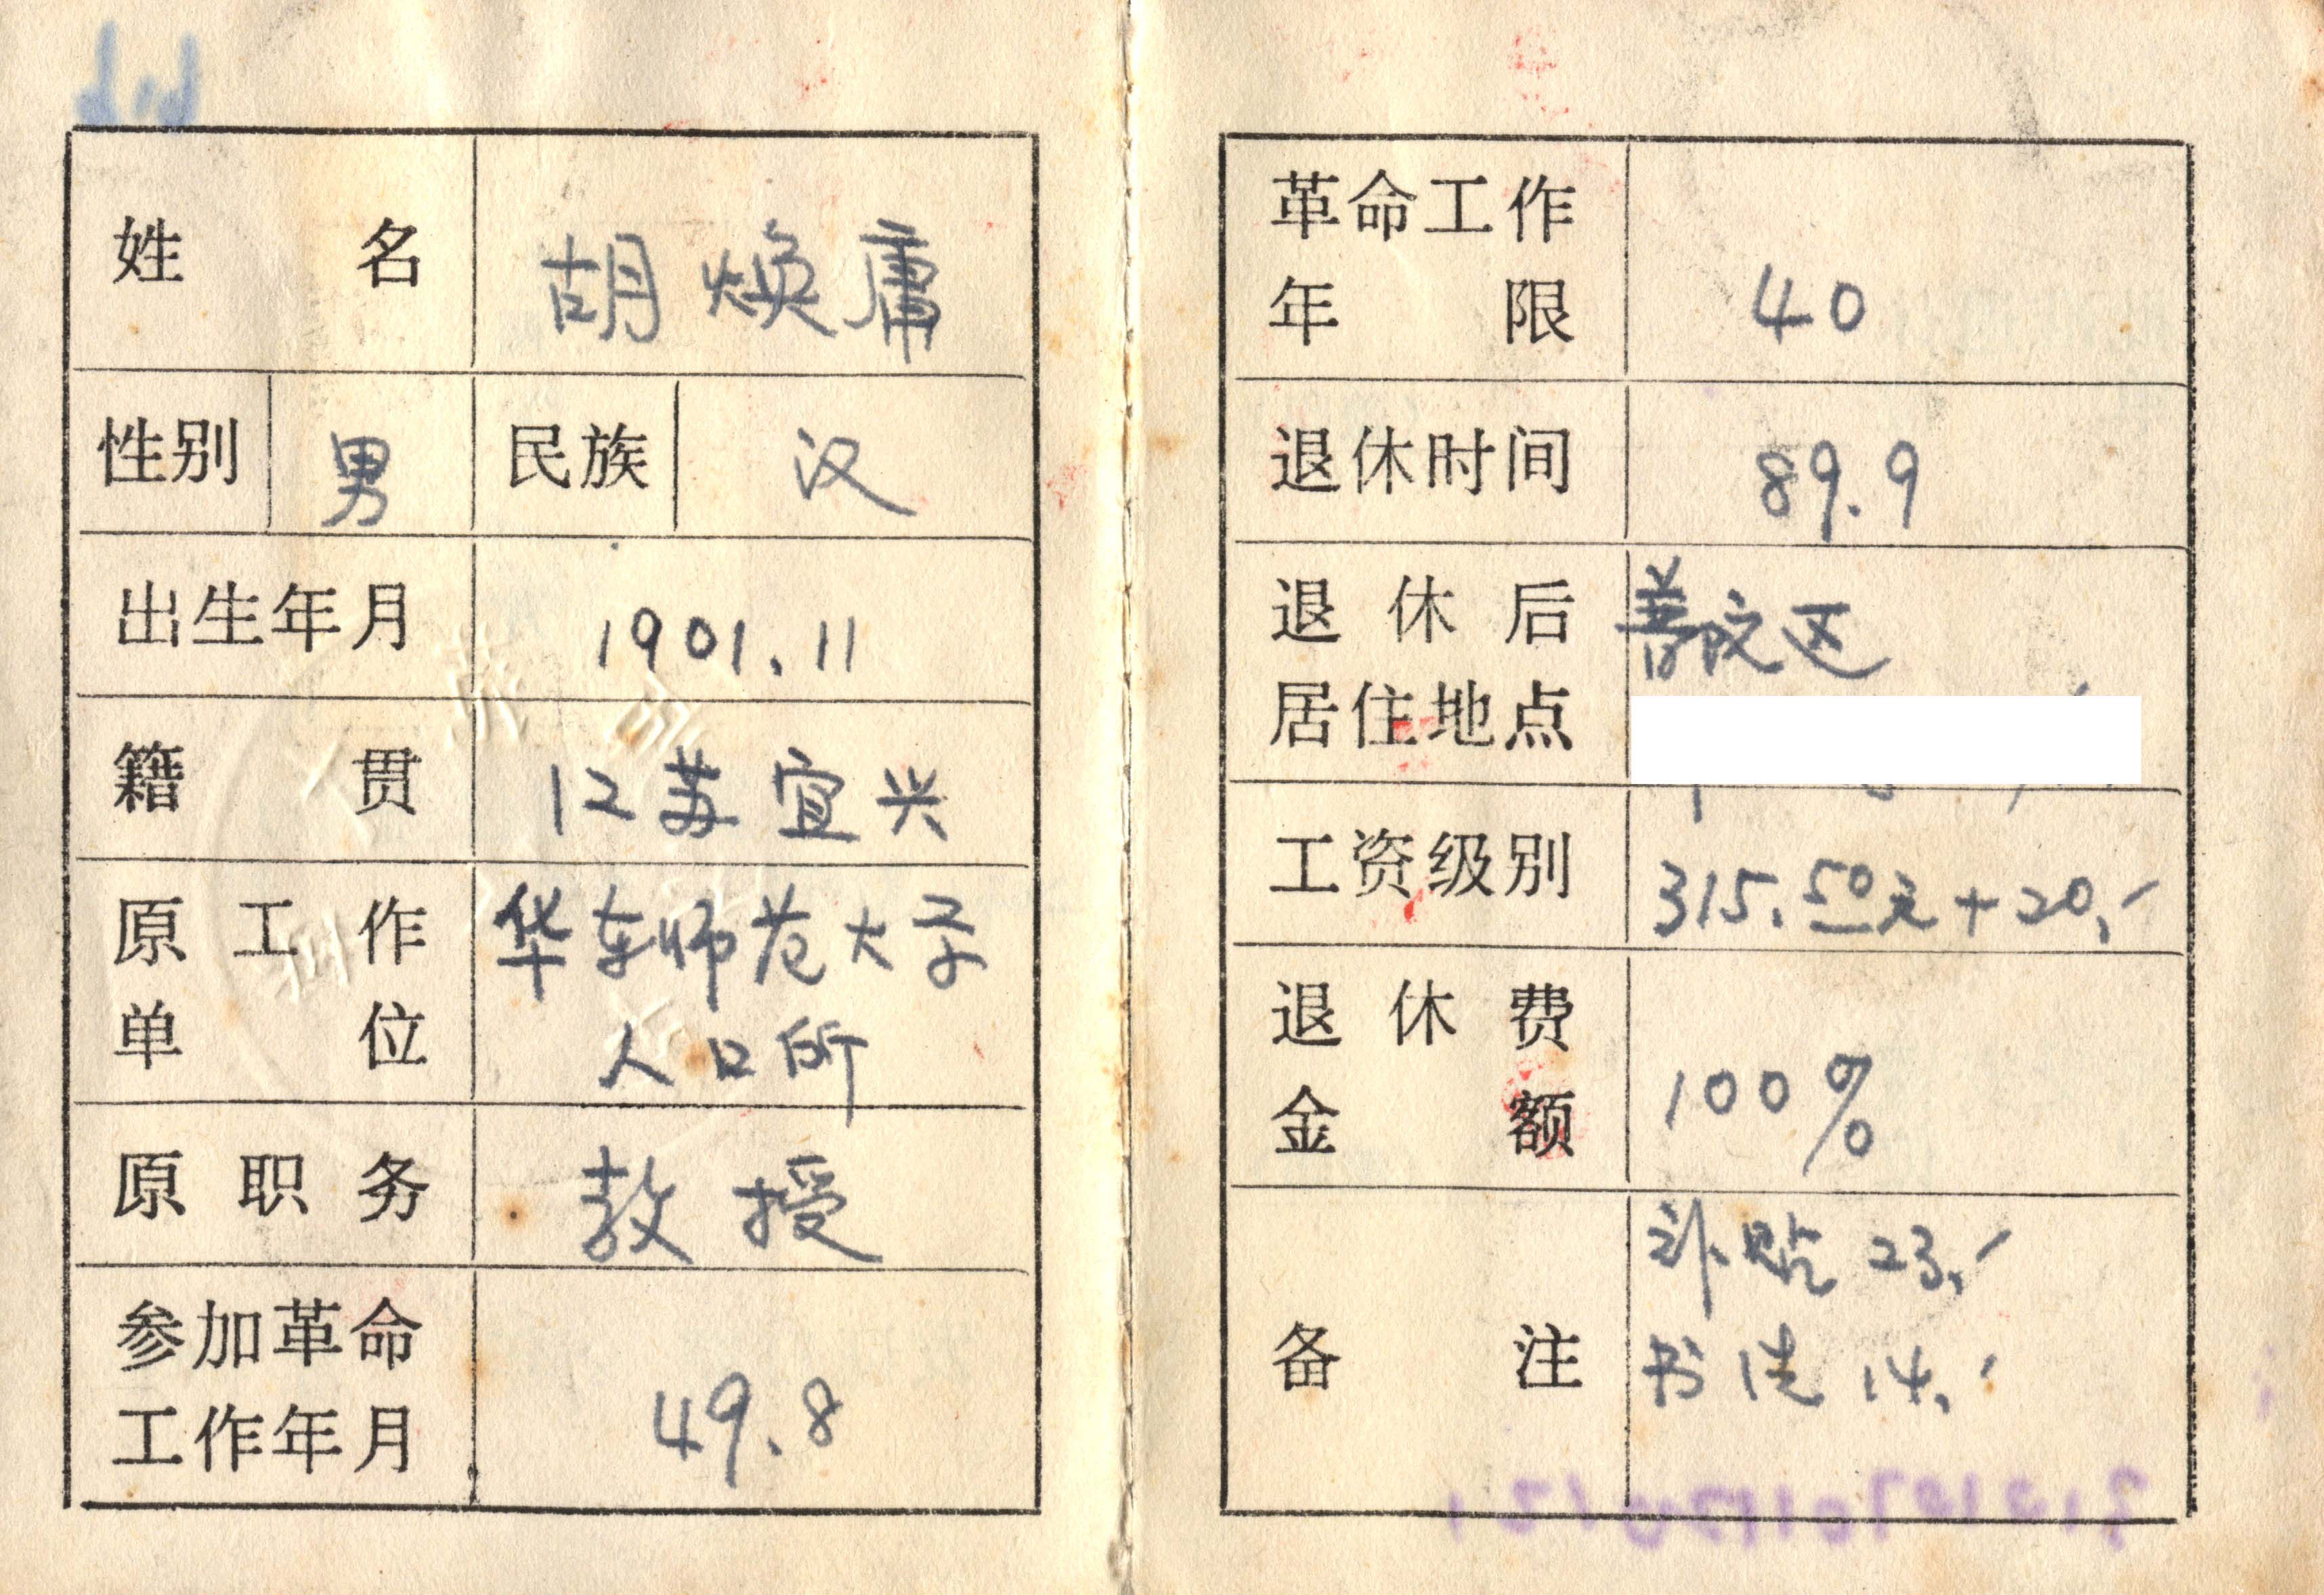 姓名 胡焕庸
性别 男 民族 汉
出生年月 1901.11
籍贯 江苏宜兴
原工作单位 华东师范大学
人口所
原职务 教授
参加革命工作年月 49.8
革命工作年限 40
退休时间 89.9
退休后居住地点 普陀区
工资级别 315.50元+20,-
退休费金额 100%
备注 补贴 23,-
书 14,-